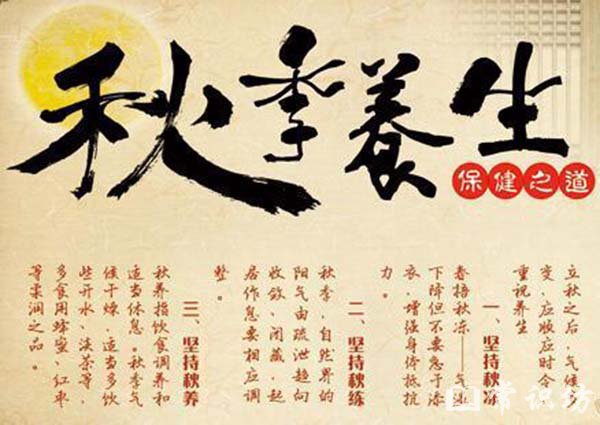 秋季養生
保健之道
立秋之后,气候
变,应应时令
重视养生
一、坚持秋
春捂秋冻——气
下降但不要急于添
衣,增强身体抵抗
力。
二、坚持秋练
秋季,自然界的
阳气由疏泄趋向
收敛、闭藏,起
居作息要相应调
整。
三、坚持秋养
秋养指饮食调养和
适当休息。秋季气
候干燥,适当多饮
些开水、淡茶等,
多食用蜂蜜,红枣
等柔润之品。
常识坊